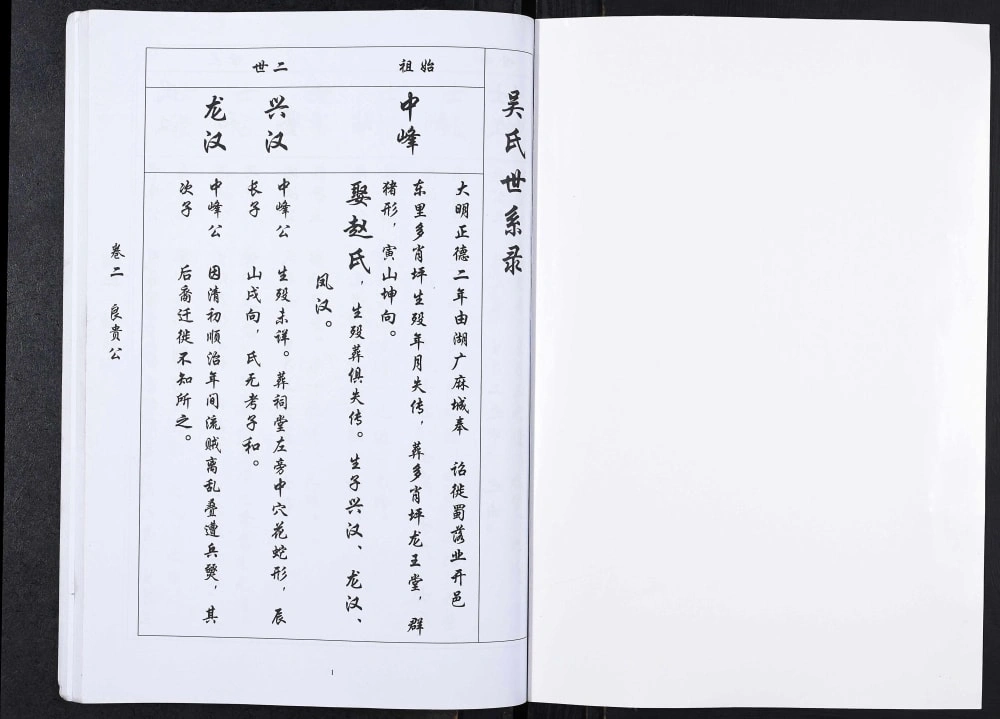 吴氏世系录
始祖
中峰
大明正德二年由湖广麻城奉 诏徙蜀落业开邑
东里多肖坪生殁年月失传，葬多肖坪龙王堂，群
猪形，寅山坤向。
娶赵氏，生殁葬俱失传。生子兴汉、龙汉、
凤汉。
二世
兴汉
中峰公
长子
生殁未详。葬祠堂左旁中穴花蛇形，辰
山戌向，氏无考子和。
龙汉
中峰公
次子
因清初顺治年间流贼离乱叠遭兵燹，其
后裔迁徙不知所之。
卷二 良贵公
1